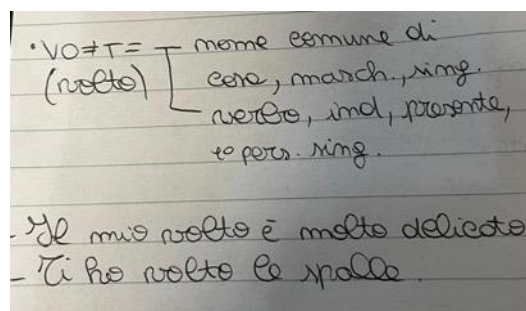 • VO≠T= nome comune di
(volto) cosa, masch., sing.
verbo, ind, presente,
1º pers. sing.
- Il mio volto è molto delicato
- Ti ho volto le spalle.